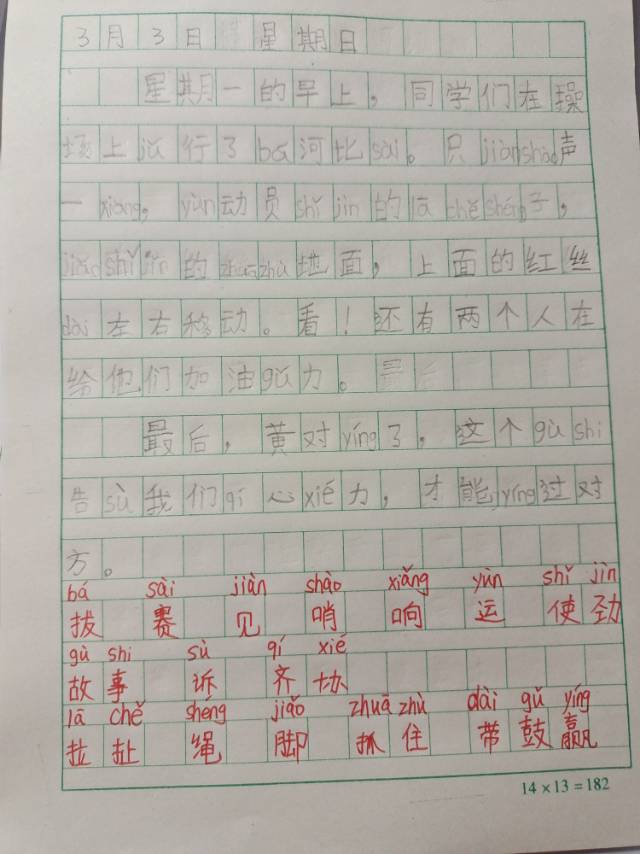 3月3日 星期日
星期一的早上，同学们在操
场上jǔ行了bá河比sài。只jiànshào声
一xiǎng，yùn动员shǐjìn的lāchěshéng子，
jiǎoshǐjìn的zhuāzhù地面，上面的红丝
dài左右移动。看！还有两个人在
给他们加油gǔ力。
最后，黄对yíng了，这个gùshi
告sù我们qí心xié力，才能yíng过对
方。
bá sài jiàn shào xiǎng yùn shǐ jìn
拔 赛 见 哨 响 运 使 劲
gù shi sù qí xié
故 事 诉 齐 协
lā chě shéng jiǎo zhuā zhù dài gǔ yíng
拉 扯 绳 脚 抓 住 带 鼓 赢
14×13=182